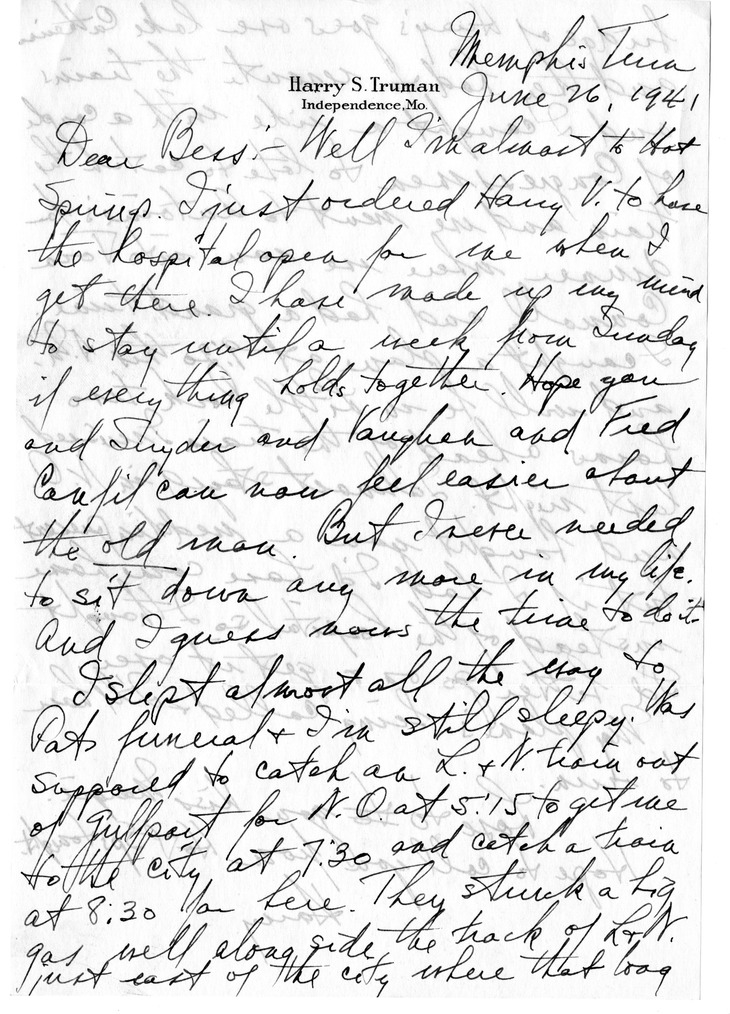 Memphis Tenn
Harry S. Truman
Independence, Mo.
June 26, 1941
Dear Bess:- Well I'm almost to Hot
Springs. I just ordered Harry V. to have
the hospital open for me when I
get there. I have made up my mind
to stay until a week from Sunday
if everything holds together. Hope you
and Snyder and Vaughan and Fred
Canfil can now feel easier about
the old man. But I never needed
to sit down any more in my life.
And I guess nows the time to do it.
I slept almost all the way to
Pats funeral & I'm still sleepy. Was
supposed to catch an L. & N. train out
of Gulfport for N.O. at 5:15 to get me
to the city at 7:30 and catch a train
at 8:30 for here. They struck a big
gas well along side the track of L&N.
just east of the city where that long